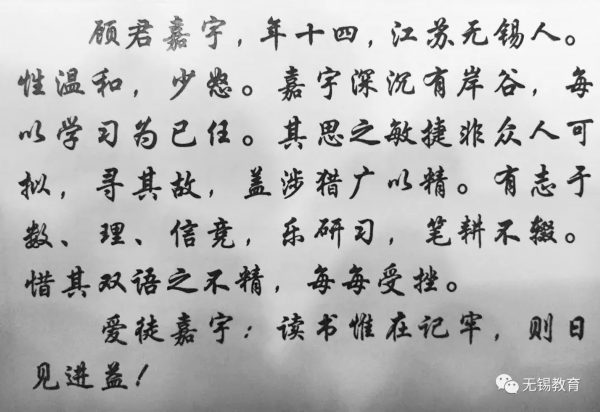 顾君嘉宇，年十四，江苏无锡人。
性温和，少怒。嘉宇深沉有岸谷，每
以学习为己任。其思之敏捷非众人可
拟，寻其故，盖涉猎广以精。有志于
数、理、信竞，乐研习，笔耕不辍。
惜其双语之不精，每每受挫。
爱徒嘉宇：读书惟在记牢，则日
见进益！
无锡教育